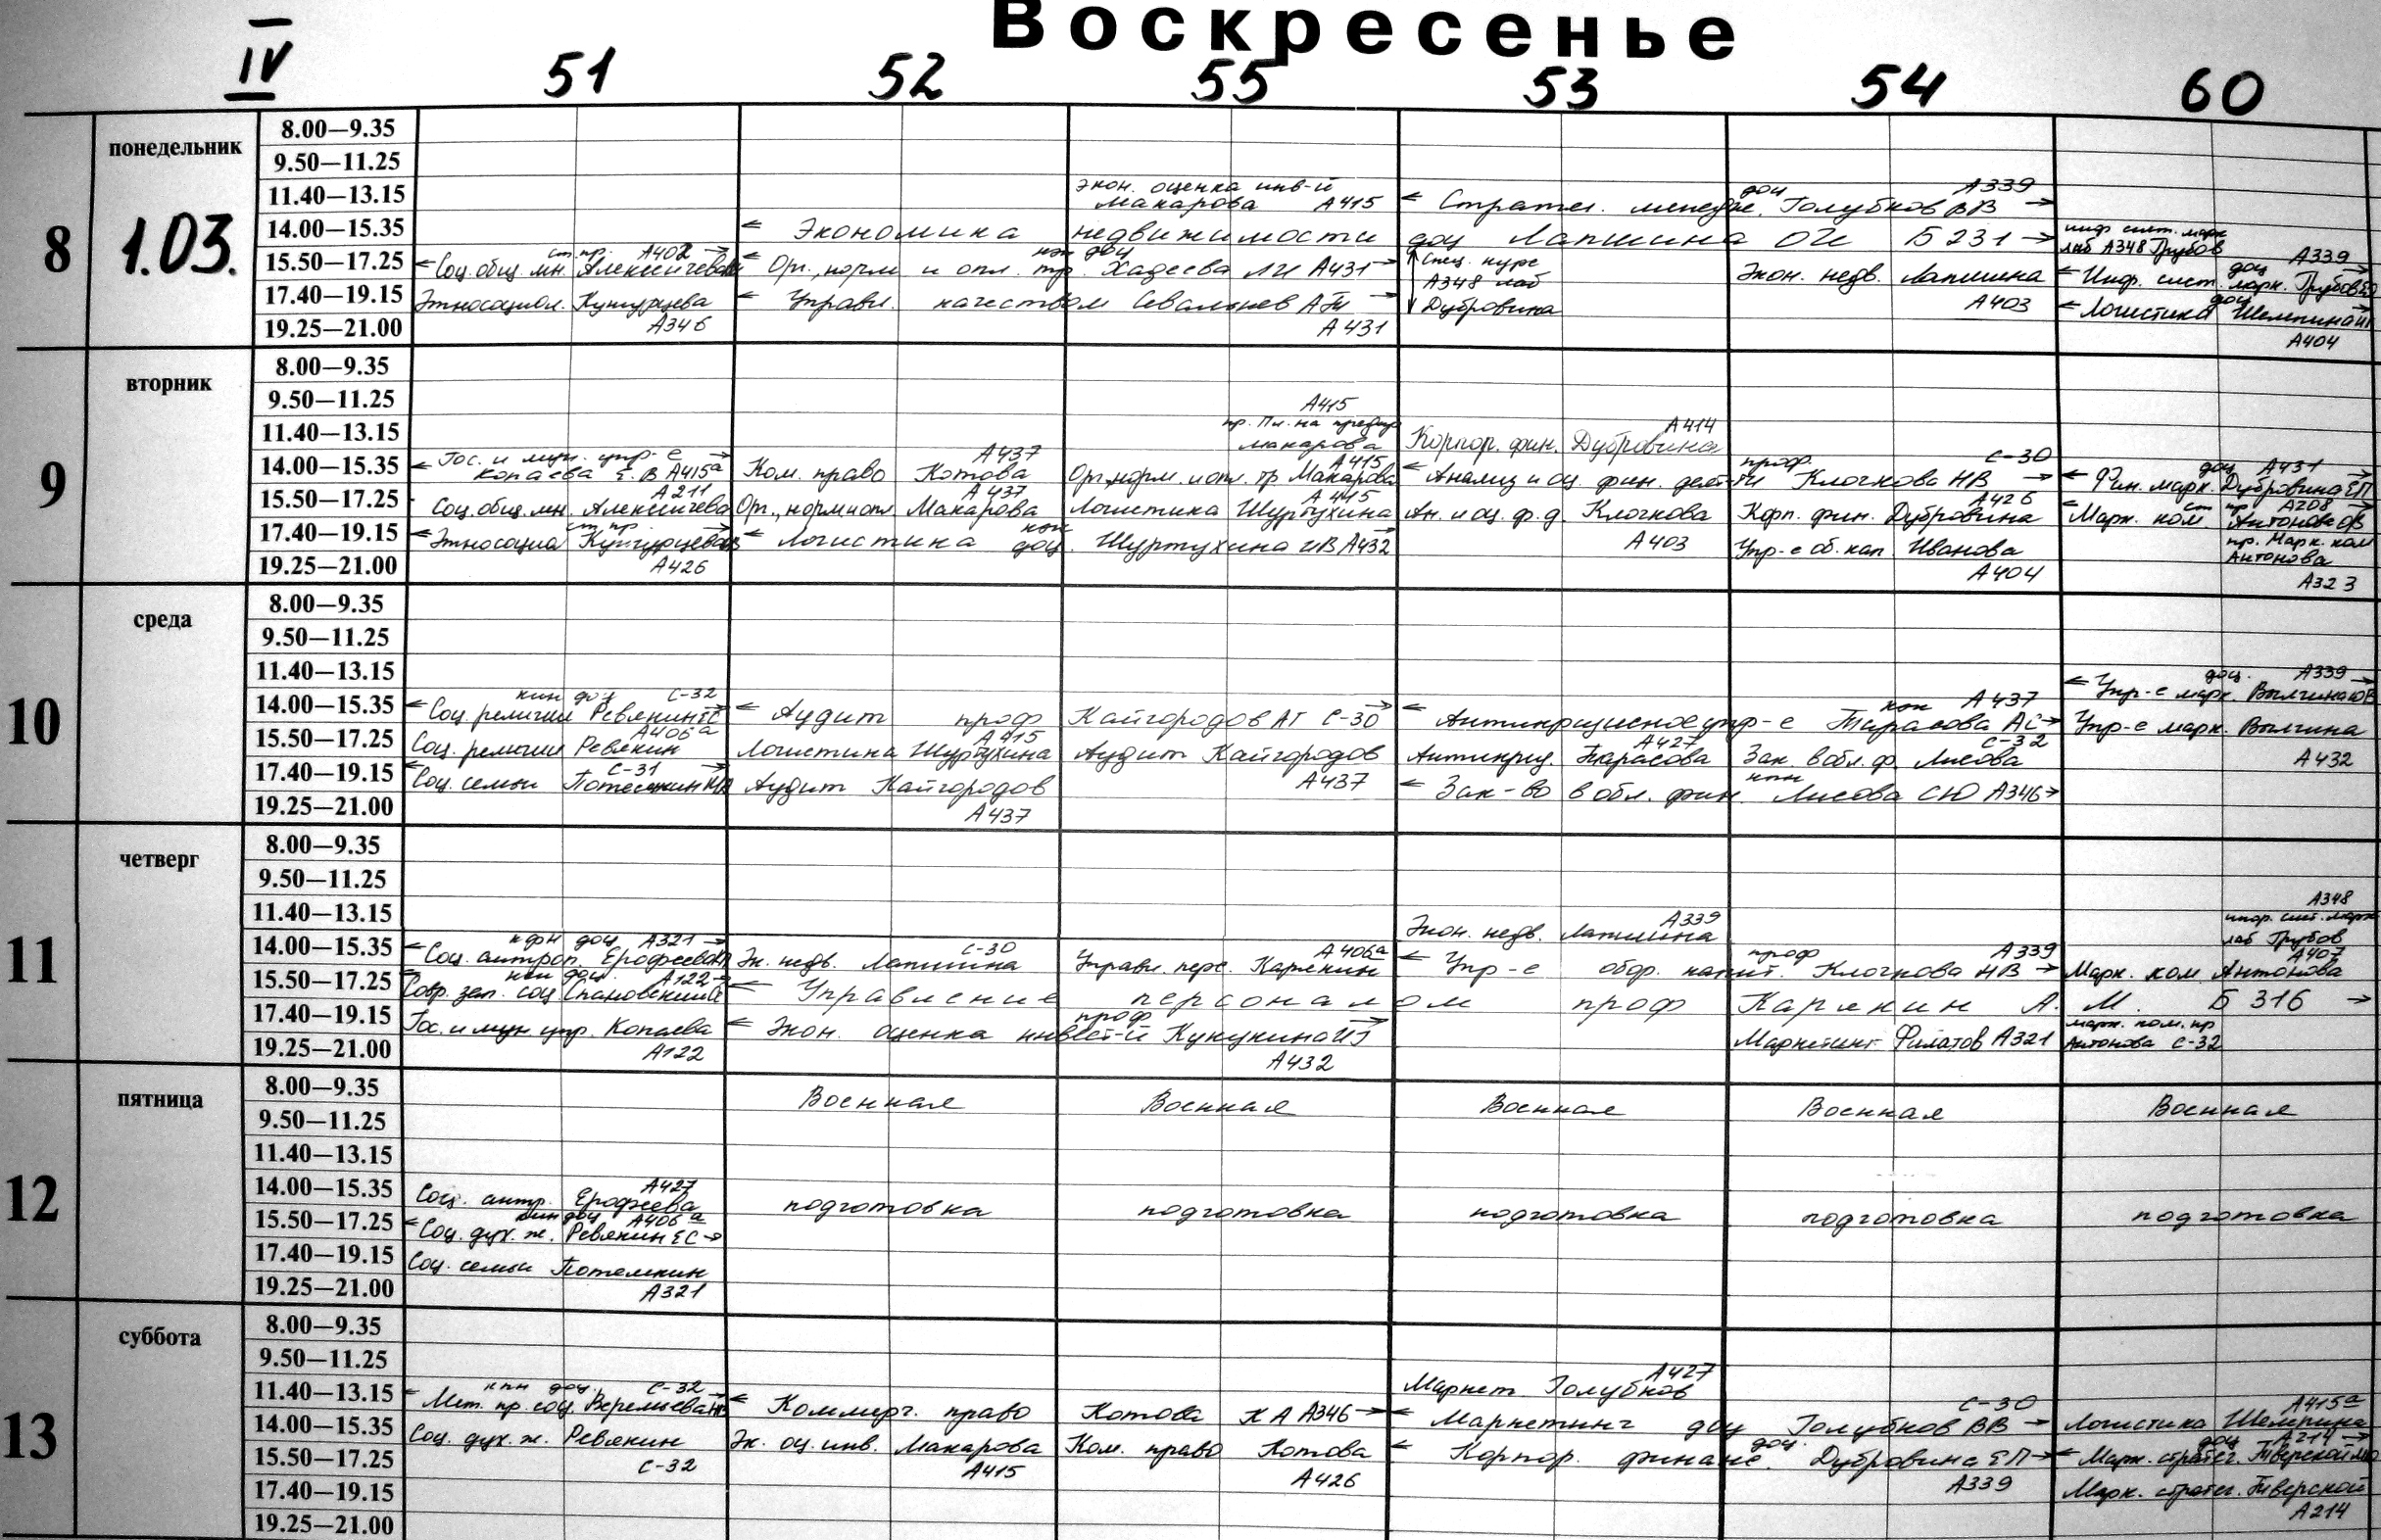 Воскресенье
IV 51 52 55 53 54 60
8 понедельник 1.03.
8.00—9.35
9.50—11.25
11.40—13.15 экон. оценка инв-й Макарова А415 ← Стратег. менедж. доц Голубков ВВ А339 →
14.00—15.35 ← Экономика недвижимости доц Лапшина ОИ Б231 → инф сист. марк лаб А348 Грубов
15.50—17.25 ← Соц. общ. мн. ст. пр. А402 → ← Орг., норм и опл. тр. доц Хадеева ЛИ А431 → Спец. курс А348 лаб Дубровина Экон. недв. Лапшина А403 ← Инф. сист. марк. доц Грубов А339 →
17.40—19.15 Этносоциол. Кунгурцева А346 ← Управл. качеством А431 → ← Логистика доц А404 →
19.25—21.00
9 вторник
8.00—9.35
9.50—11.25
11.40—13.15 А415 пр. Пл. на предпр Макарова Корпор. фин. Дубровина А414
14.00—15.35 ← Гос. и мун. упр-е Копаева Е.В А415а → Ком. право Котова А437 Орг, норм. и опл. тр Макарова А415 ← Анализ и оц фин. деят-ти проф. Клочкова НВ С-30 → ← Фин. марк. доц Дубровина ЕП А431 →
15.50—17.25 Соц. общ. мн. А211 Орг., норм и опл Макарова А437 Логистика Шуртухина А415 Ан. и оц. ф. д. Клочкова А403 Корп. фин. Дубровина А426 ← Марк. ком ст пр Антонова ОВ А208 →
17.40—19.15 ← Этносоциол ст пр. Кунгурцева А426 → ← Логистика доц. Шуртухина ИВ А432 → Упр-е об. кап. Иванова А404 пр. Марк. ком Антонова А323
19.25—21.00
10 среда
8.00—9.35
9.50—11.25
11.40—13.15 ← Упр-е марк. доц. А339 →
14.00—15.35 ← Соц религии доц Ревякин ЕС С-32 → ← Аудит проф Кайгородов АГ С-30 → ← Антикризисное упр-е Тарасова АС А437 → Упр-е марк. А432
15.50—17.25 Соц. религии Ревякин А406а Логистика Шуртухина А415 Аудит Кайгородов А437 Антикриз. Тарасова А427 Зак. в обл. ф. Лисова С-32
17.40—19.15 ← Соц. семьи Потемкин С-31 → Аудит Кайгородов А437 ← Зак-во в обл. фин. Лисова СЮ А346 →
19.25—21.00
11 четверг
8.00—9.35
9.50—11.25
11.40—13.15 Экон. недв. Лапшина А339 А348 инфор. сист. марк лаб Грубов
14.00—15.35 ← Соц. антроп. доц Ерофеева А321 → Эк. недв. Лапшина С-30 Управл. перс. Карякин А406а ← Упр-е обор. капит. проф Клочкова НВ А339 → Марк. ком Антонова А407
15.50—17.25 Совр. зап. соц доц. А122 → ← Управление персоналом проф Карякин А. М. Б316 →
17.40—19.15 Гос. и мун упр. Копаева А122 ← Экон. оценка инвест-й проф Кукукина ИГ А432 → Маркетинг Филатов А321 марк. ком. пр Антонова С-32
19.25—21.00
12 пятница
8.00—9.35 Военная Военная Военная Военная Военная
9.50—11.25
11.40—13.15
14.00—15.35 Соц. антр. Ерофеева А427 подготовка подготовка подготовка подготовка подготовка
15.50—17.25 ← Соц. дух. ж. доц Ревякин ЕС А406а →
17.40—19.15 Соц. семьи Потемкин А321
19.25—21.00
13 суббота
8.00—9.35
9.50—11.25
11.40—13.15 ← Мет. пр. соц. доц. С-32 → ← Коммерч. право Котова КА А346 → Маркет Голубков А427
14.00—15.35 Соц. дух. ж. Ревякин С-32 Эк. оц. инв. Макарова А415 Ком. право Котова А426 ← Маркетинг доц Голубков ВВ С-30 → Логистика А415а
15.50—17.25 ← Корпор. финанс. доц. Дубровина ЕП А339 → ← Марк. стратег. доц Тверской А214 →
17.40—19.15 Марк. стратег. Тверской А214
19.25—21.00